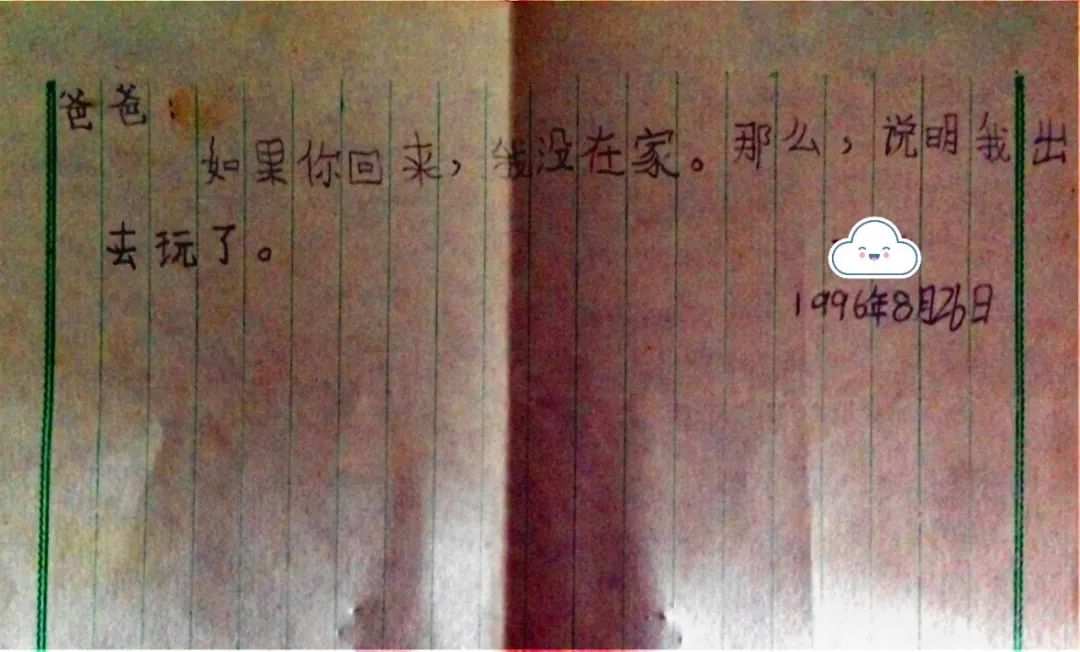 爸爸：
如果你回来，我没在家。那么，说明我出
去玩了。
1996年8月26日